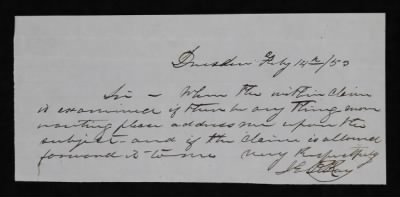 Dresden Feby 14th/53
Sir – When the within claim
is examined if there be any thing more
wanting please address me upon the
subject – and if the claim is allowed
forward it to me Very Respectfully